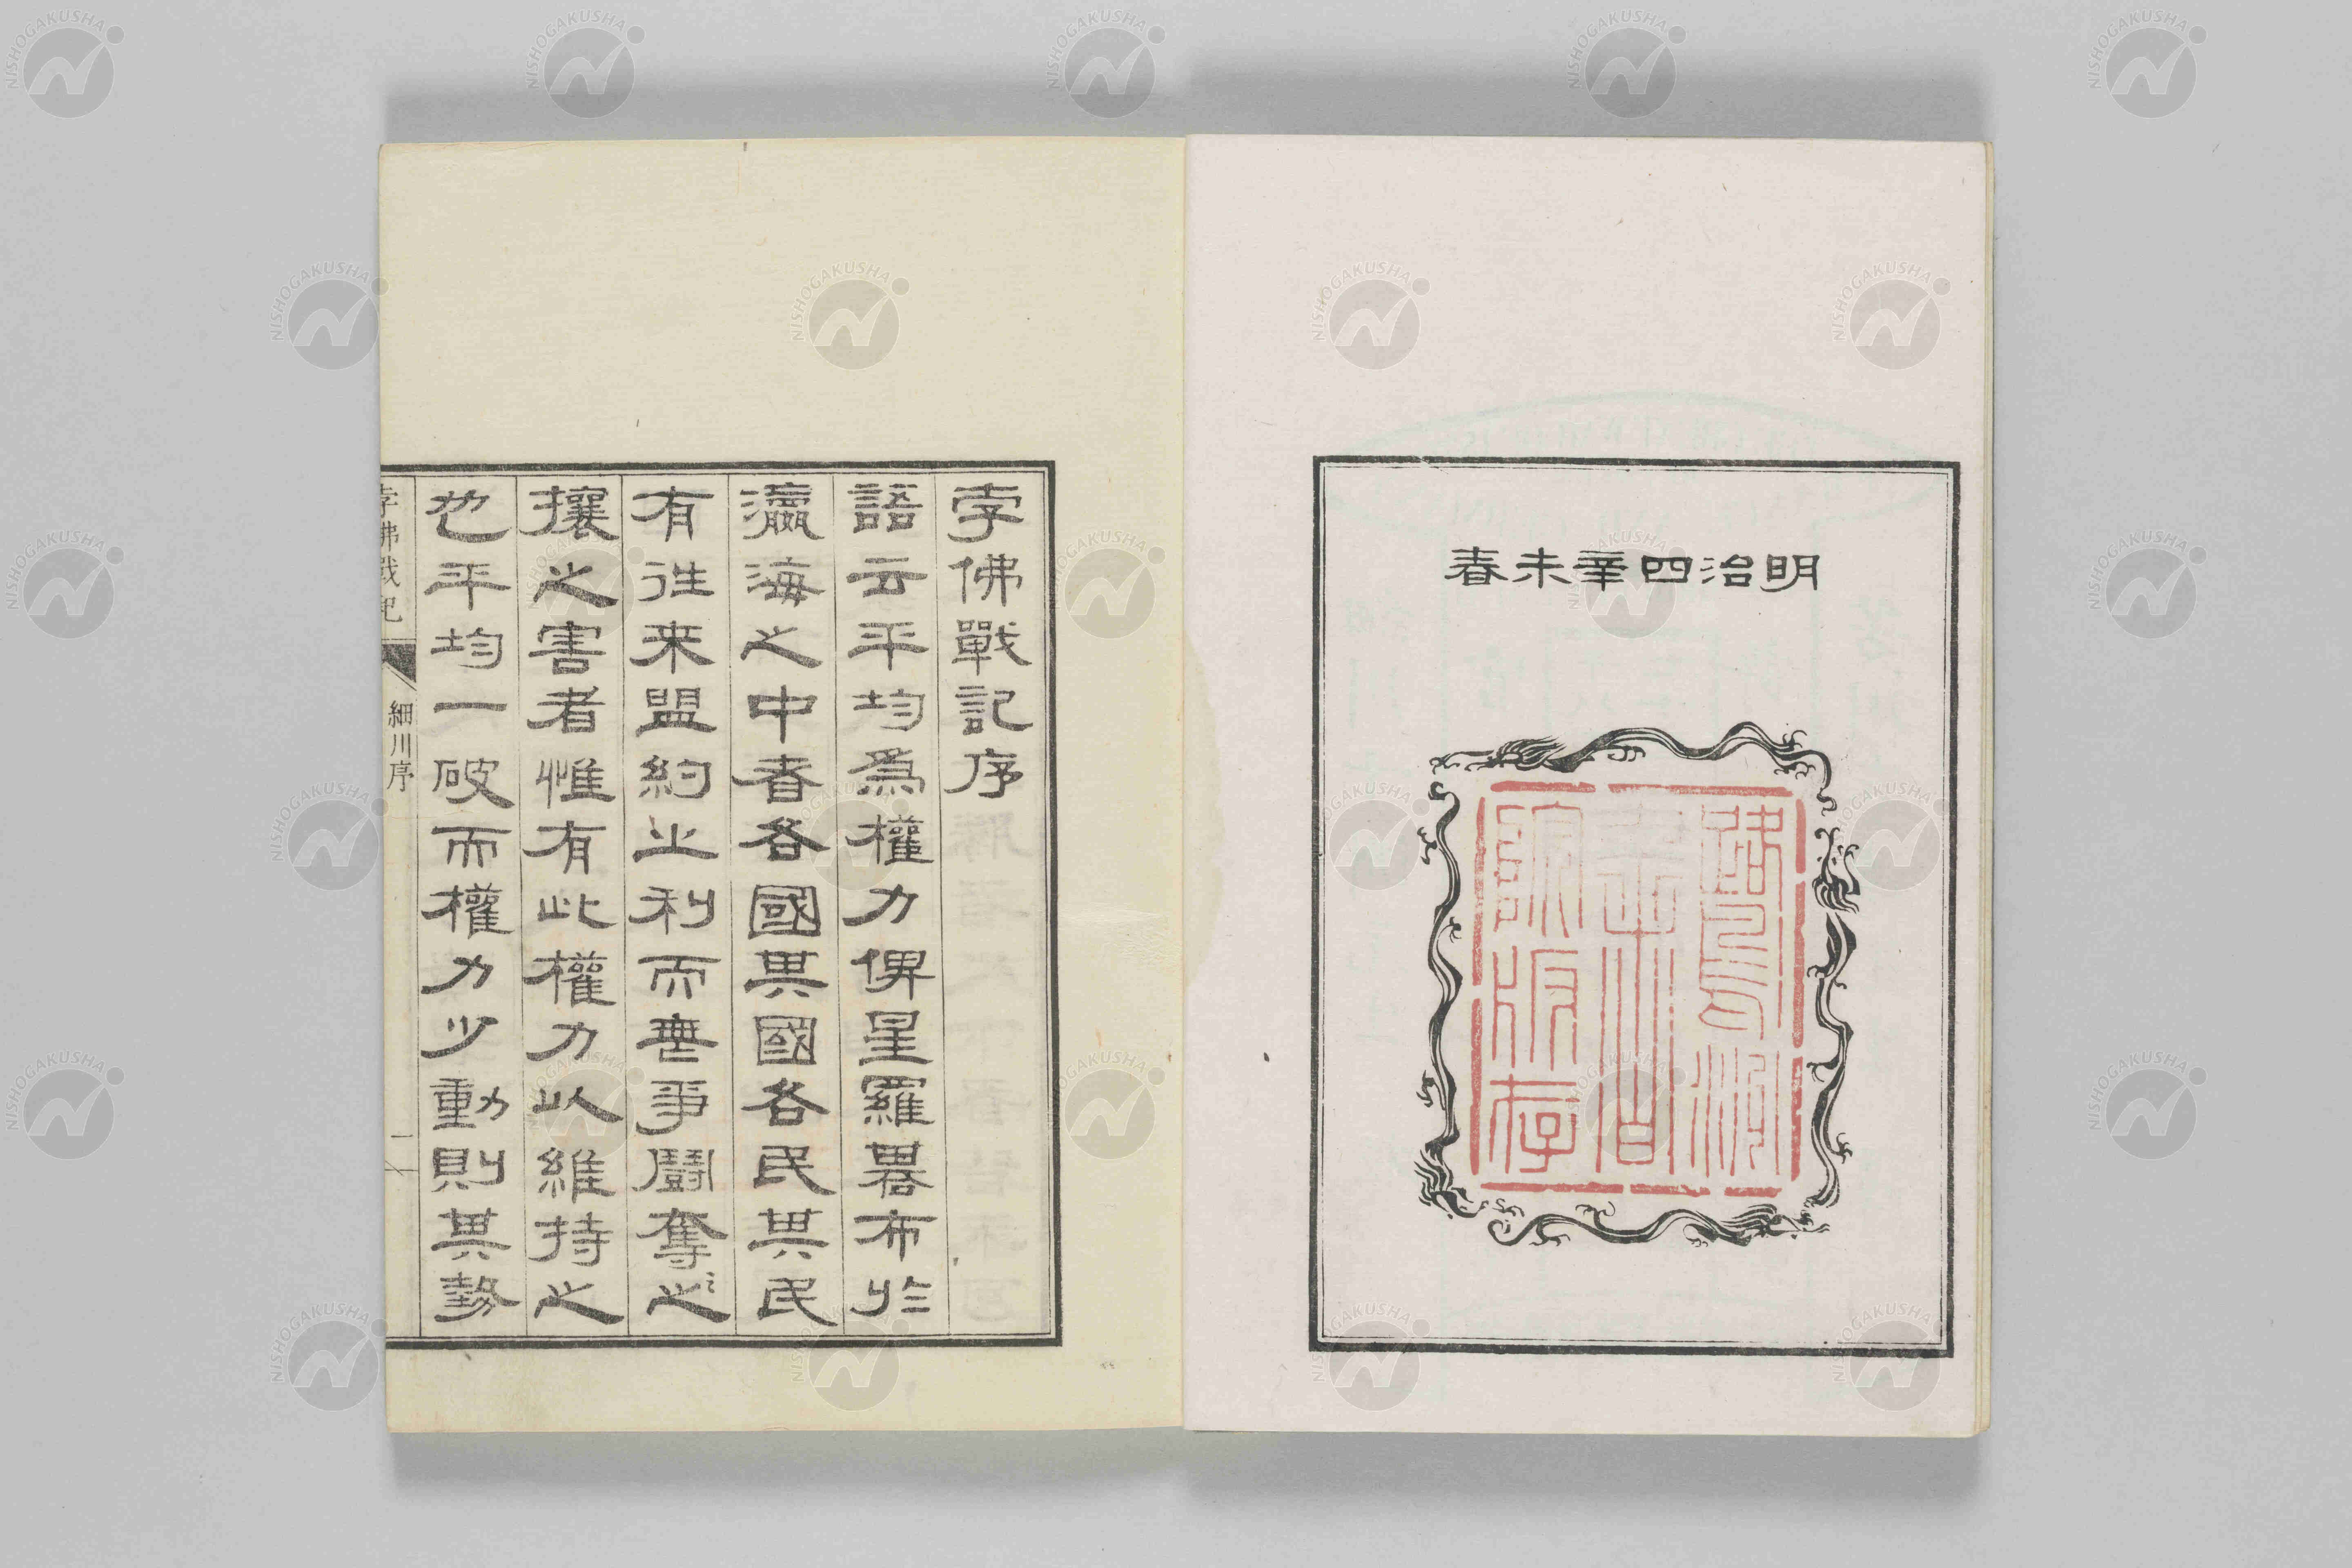 明治四辛未春
孛佛戰記序
語云平均爲權力俾星羅碁布於
瀛海之中者各國其國各民其民
有往来盟約之利而無爭鬪奪之
攘之害者惟有此權力以維持之
也平均一破而權力少動則其勢
孛佛戰記 細川序 一
NISHOGAKUSHA